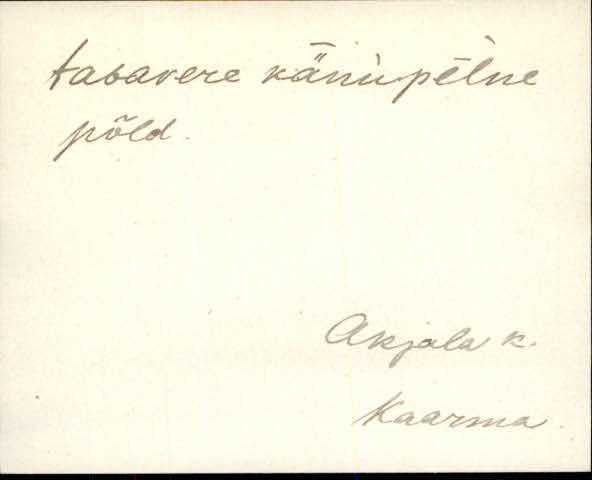 tabavere känupēlne
põld.
Akjala k.
Kaarma.